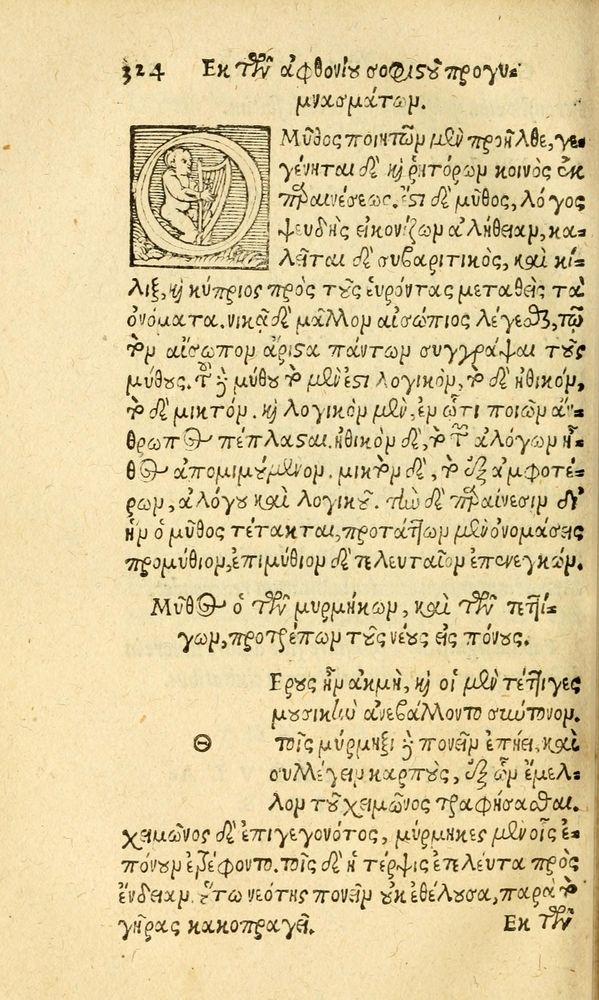 324 Εκ τῶν ἀφθονίου σοφιστοῦ προγυ-
μνασμάτων.
Ο Μῦθος ποιητῶν μὲν προῆλθε, γε-
γένηται δὲ καὶ ῥητόρων κοινὸς ἐκ
παραινέσεως. ἔστι δὲ μῦθος, λόγος
ψευδὴς εἰκονίζων ἀλήθειαν, κα-
λεῖται δὲ συβαριτικὸς, καὶ κί-
λιξ, καὶ κύπριος πρὸς τοὺς εὑρόντας μεταθεὶς τὰ
ὀνόματα. νικᾷ δὲ μᾶλλον αἰσώπιος λέγεσθαι, τῷ
τὸν αἴσωπον ἄριστα πάντων συγγράψαι τοὺς
μύθους. τοῦ δὲ μύθου τὸ μέν ἐστι λογικὸν, τὸ δὲ ἠθικόν,
τὸ δὲ μικτόν. καὶ λογικὸν μὲν, ἐν ᾧ τι ποιῶν ἄν-
θρωπος πέπλασται. ἠθικὸν δὲ, τὸ τῶν ἀλόγων ἦ-
θος ἀπομιμούμενον. μικτὸν δὲ, τὸ ἐξ ἀμφοτέ-
ρων, ἀλόγου καὶ λογικοῦ. τὴν δὲ παραίνεσιν δι'
ἣν ὁ μῦθος τέτακται, προτάττων μὲν ὀνομάσεις
προμύθιον, ἐπιμύθιον δὲ τελευταῖον ἐπενεγκών.
Μῦθος ὁ τῶν μυρμήκων, καὶ τῶν τεττί-
γων, προτρέπων τοὺς νέους εἰς πόνους.
Θ Ερους ἦν ἀκμὴ, καὶ οἱ μὲν τέττιγες
μουσικὴν ἀνεβάλλοντο σύντονον.
τοῖς μύρμηξι δὲ πονεῖν ἐπῄει, καὶ
συλλέγειν καρποὺς, ἐξ ὧν ἔμελ-
λον τοῦ χειμῶνος τραφήσεσθαι.
χειμῶνος δὲ ἐπιγεγονότος, μύρμηκες μὲν οἷς ἐ-
πόνουν ἐτρέφοντο. τοῖς δὲ ἡ τέρψις ἐτελεύτα πρὸς
ἔνδειαν. οὕτω νεότης πονεῖν οὐκ ἐθέλουσα, παρὰ τὸ
γῆρας κακοπραγεῖ. Εκ τῶν